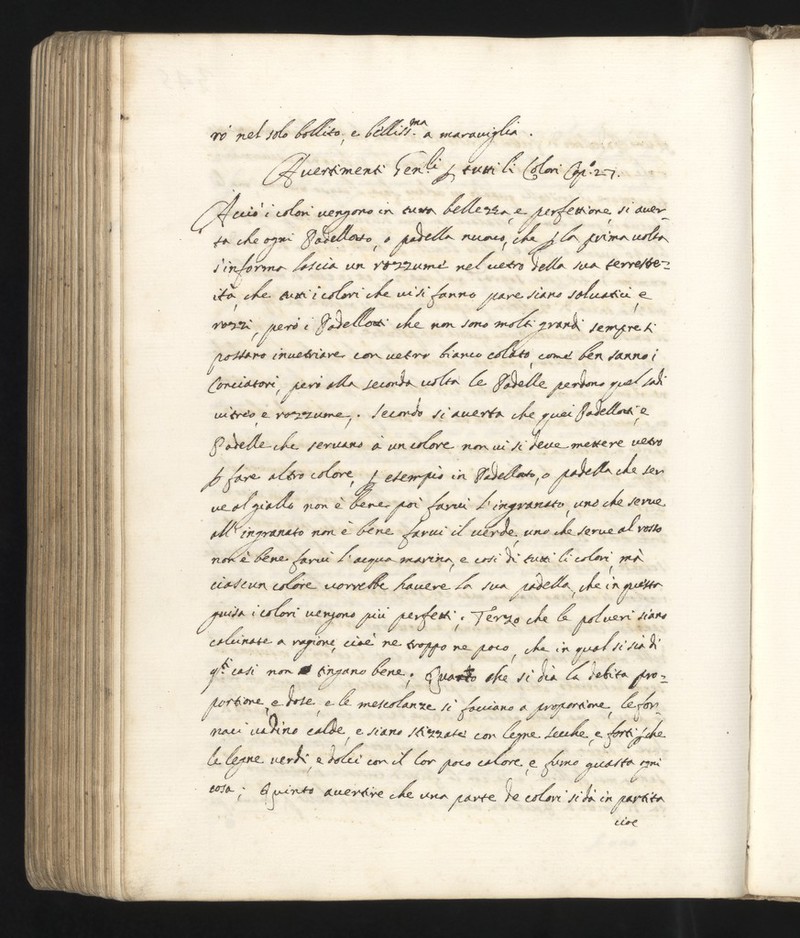 rò nel solo bollito, e belliss.ma a maraviglia.
Avertimenti Gen.li p tutti li Colori Cap.o 27.
Acciò i colori vengono in tutta bellezza, e perfettione, si aver-
ta che ogni Padellotto, o padella nuova, che p la prima volta
s'inforna lascia un rozzume nel vetro della sua terreste=
ità, che tutti i colori che vi si fanno pare siano salvatici, e
rozzi, però i Padellotti che non sono molti grandi sempre si
possano invetriare con vetro bianco colato, come ben sanno i
Conciatori, però alla seconda volta le Padelle perdono quel sudi
vitreo, e rozzume,. Secondo si averta che quei Padellotti, e
Padelle che servano à un colore non vi si deve mettere vetro
p fare altro colore, p esempio in Padellotto, o padella che ser
ve al giallo non è bene poi farvi l'ingranato, uno che serve
all'ingranato non è bene farvi il verde, uno che serve al rosso
non è bene farvi l'acqua marina, e così di tutti li colori, mà
ciascun colore vorrebbe havere la sua padella, che in questa
guisa i colori vengono più perfetti; Terzo che le polveri siano
calcinate a ragione, cioè ne troppo ne poco, che in qual si sia di
q.ti casi non tingano bene; Quarto che si dia la debita pro=
portione, e dose, e le mescolanze si facciano a proportione, le for
naci vadino calde, e siano stizzate con legne secche, e forti pche
le legne verdi, e dolci con il lor poco calore, e fumo guasta ogni
cosa; Quinto avertire che una parte de colori si dà in partita
cioè